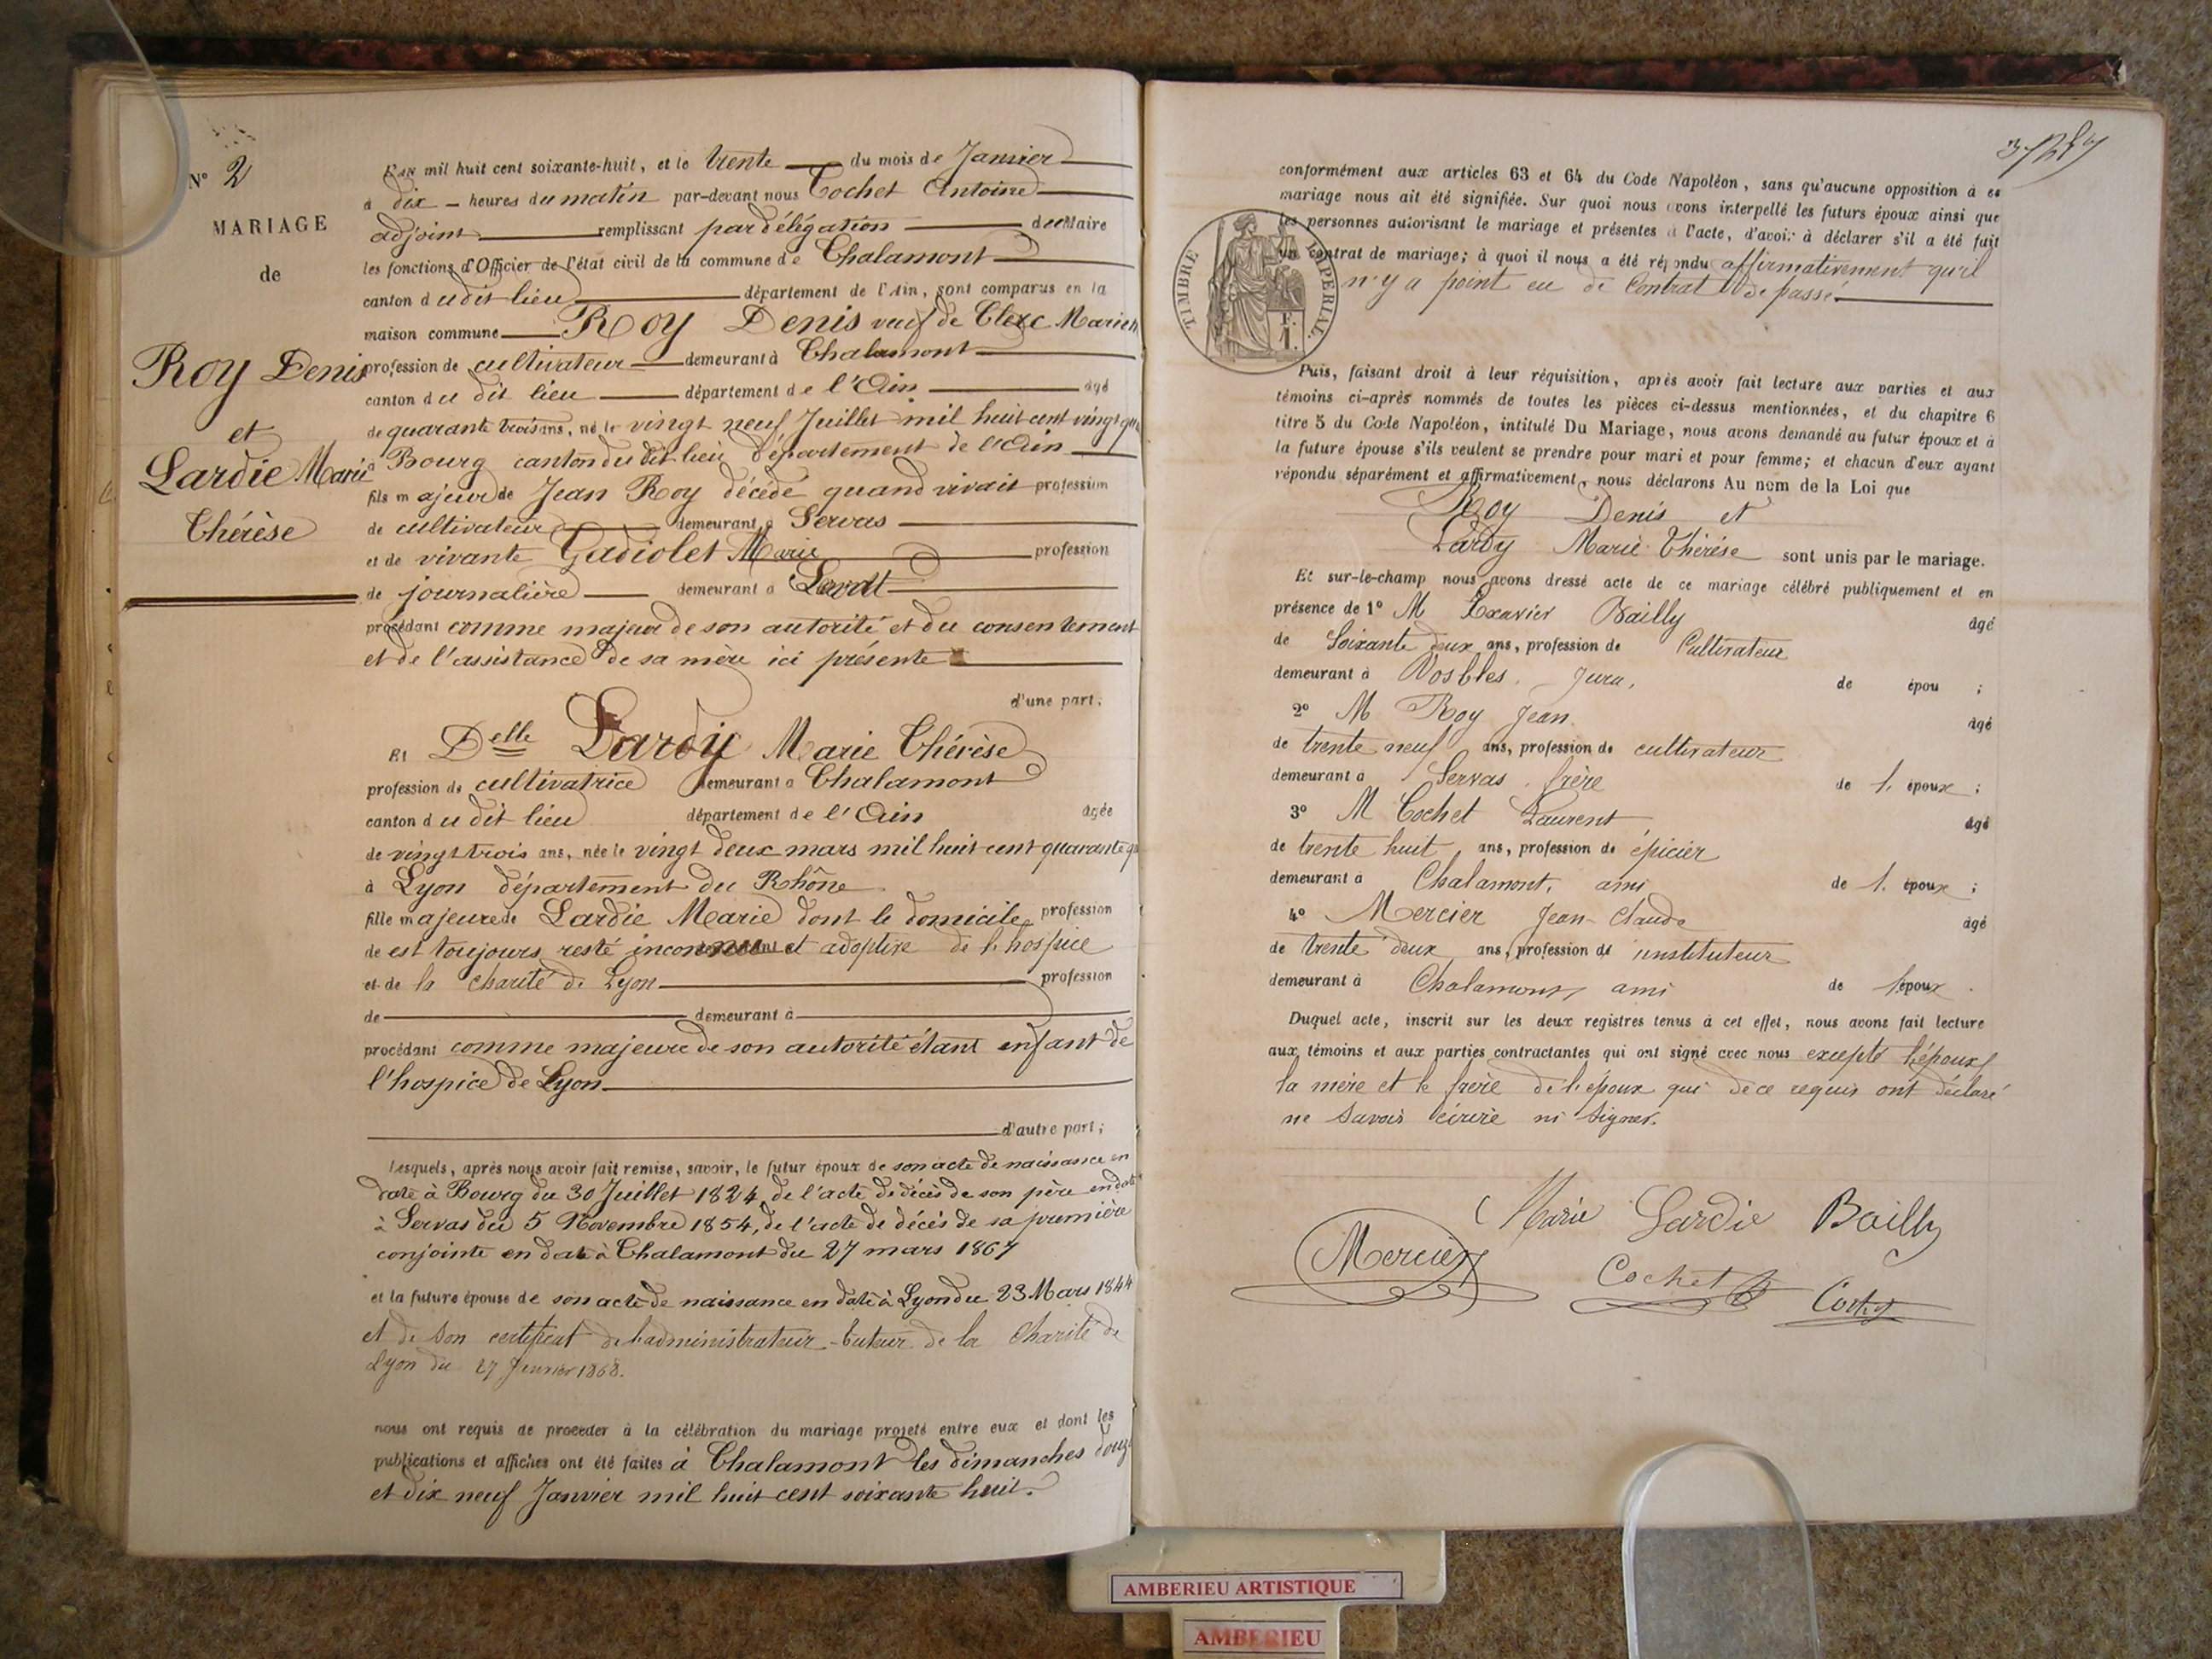 N° 2
MARIAGE
de
Roy Denis
et
Lardie Marie
Thérèse
L'an mil huit cent soixante-huit, et le trente du mois de Janvier
à dix heures du matin par-devant nous Cochet Antoine
adjoint remplissant par délégation du Maire
les fonctions d'Officier de l'état civil de la commune de Chalamont
canton du dit lieu département de l'Ain, sont comparus en la
maison commune Roy Denis veuf de Clerc Marie
profession de cultivateur demeurant à Chalamont
canton du dit lieu département de l'Ain âgé
de quarante trois ans, né le vingt neuf Juillet mil huit cent vingt
à Bourg canton du dit lieu département de l'Ain
fils majeur de Jean Roy décédé quand vivait profession
de cultivateur demeurant à Servas
et de vivante Gadiolet Marie profession
de journalière demeurant à
procédant comme majeur de son autorité et du consentement
et de l'assistance de sa mère ici présente
d'une part;
Et Delle Lardy Marie Thérèse
profession de cultivatrice demeurant à Chalamont
canton du dit lieu département de l'Ain âgée
de vingt trois ans, née le vingt deux mars mil huit cent quarante
à Lyon département du Rhône
fille majeure de Lardie Marie dont le domicile profession
de est toujours resté inconnu et adoptive de l'hospice
et de la charité de Lyon profession
de demeurant à
procédant comme majeure de son autorité étant enfant de
l'hospice de Lyon
d'autre part;
Lesquels, après nous avoir fait remise, savoir, le futur époux de son acte de naissance en
date à Bourg du 30 Juillet 1824, de l'acte de décès de son père en date
à Servas du 5 Novembre 1854, de l'acte de décès de sa première
conjointe en date à Chalamont du 27 mars 1867
et la future épouse de son acte de naissance en date à Lyon du 23 Mars 1844
et de son certificat de l'administrateur-tuteur de la Charité de
Lyon du 27 Janvier 1868.
nous ont requis de procéder à la célébration du mariage projeté entre eux et dont les
publications et affiches ont été faites à Chalamont les dimanches douze
et dix neuf Janvier mil huit cent soixante huit.
conformément aux articles 63 et 64 du Code Napoléon, sans qu'aucune opposition à ce
mariage nous ait été signifiée. Sur quoi nous avons interpellé les futurs époux ainsi que
les personnes autorisant le mariage et présentes à l'acte, d'avoir à déclarer s'il a été fait
un contrat de mariage; à quoi il nous a été répondu affirmativement qu'il
n'y a point eu de Contrat de passé.
TIMBRE IMPÉRIAL.
Puis, faisant droit à leur réquisition, après avoir fait lecture aux parties et aux
témoins ci-après nommés de toutes les pièces ci-dessus mentionnées, et du chapitre 6
titre 5 du Code Napoléon, intitulé Du Mariage, nous avons demandé au futur époux et à
la future épouse s'ils veulent se prendre pour mari et pour femme; et chacun d'eux ayant
répondu séparément et affirmativement, nous déclarons Au nom de la Loi que
Roy Denis et
Lardy Marie Thérèse sont unis par le mariage.
Et sur-le-champ nous avons dressé acte de ce mariage célébré publiquement et en
présence de 1° M Exavier Bailly âgé
de Soixante deux ans, profession de Cultivateur
demeurant à Vosbles. Jura, de épou ;
2° M Roy Jean. âgé
de trente neuf ans, profession de cultivateur
demeurant à Servas. frère de l. époux ;
3° M Cochet Laurent âgé
de trente huit ans, profession de épicier
demeurant à Chalamont, ami de l. époux ;
4° Mercier Jean-Claude âgé
de trente deux ans, profession de instituteur
demeurant à Chalamont, ami de l'époux.
Duquel acte, inscrit sur les deux registres tenus à cet effet, nous avons fait lecture
aux témoins et aux parties contractantes qui ont signé avec nous excepté l'époux
la mère et le frère de l'époux qui de ce requis ont déclaré
ne savoir écrire ni signer.
Marie Lardie Bailly
Mercier Cochet Cochet
AMBERIEU ARTISTIQUE
AMBERIEU